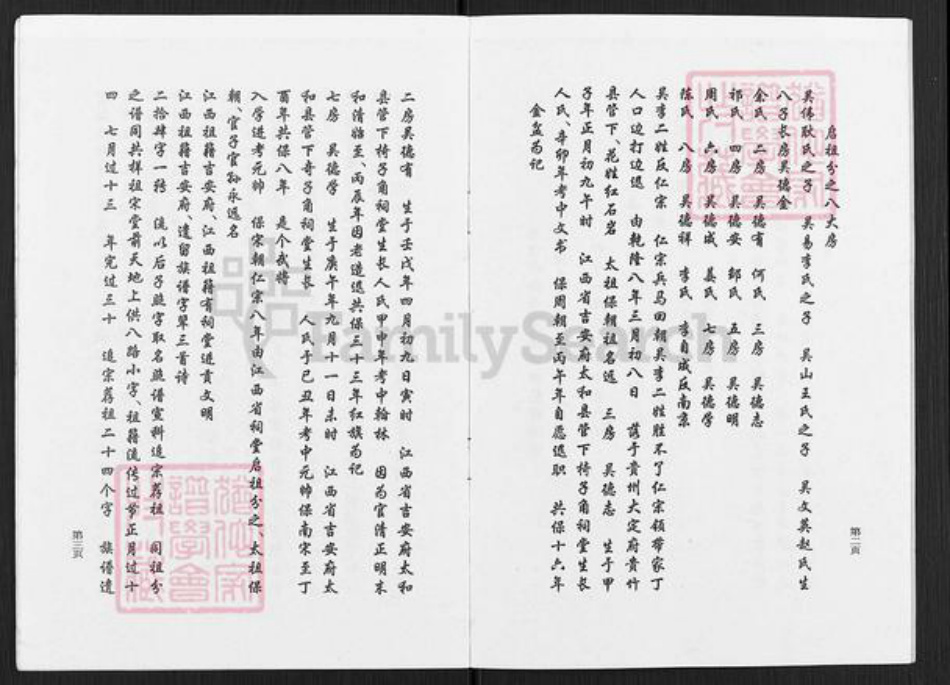 启祖分之八大房
吴伟耿氏之子 吴易李氏之子 吴山王氏之子 吴文英赵氏生
八子长房吴德金
余氏 二房 吴德有 何氏 三房 吴德志
祁氏 四房 吴德安 邹氏 五房 吴德明
周氏 六房 吴德成 姜氏 七房 吴德学
陈氏 八房 吴德祥 李氏 李自成反南京
吴李二姓反仁宗 仁宗兵马回朝吴李二姓胜不了仁宗领带家丁
人口边打边退 由乾隆八年三月初八日 落于贵州大定府贵竹
县管下、花姓红石岩 太祖保朝祖名远 三房 吴德志 生于甲
子年正月初九午时 江西省吉安府太和县管下椅子角祠堂生长
人氏、辛卯年考中文书 保周朝至丙午年自愿退职 共保十六年
金盆为记
第二页
二房吴德有 生于壬戌年四月初九日寅时 江西省吉安府太和
县管下椅子角祠堂生长人氏甲申年考中翰林 因为官清正明末
和清始至、丙辰年因老道退共保三十三年红旗为记
七房 吴德学 生于庚午年九月十一日未时 江西省吉安府太
和县管下奇子角祠堂生长 人氏于己丑年考中元帅保南宋至丁
酉年共保八年 是个武将
入学进考元帅 保宋朝仁宗八年由江西省祠堂启祖分之、太祖保
朝、官子官孙永远名
江西祖籍吉安府、江西祖籍有祠堂进贵文明
江西祖籍吉安府、遗留族谱字辈三首诗
二拾肆字一转 流以后子照字取名照谱宣科追宗荐祖 同祖分
之谱同共祥祖宋堂前天地上供八路小字、祖籍流传过节正月过十
四 七月过十三 年完过三十 追宗荐祖二十四个字 族谱遗
第三页
FamilySearch